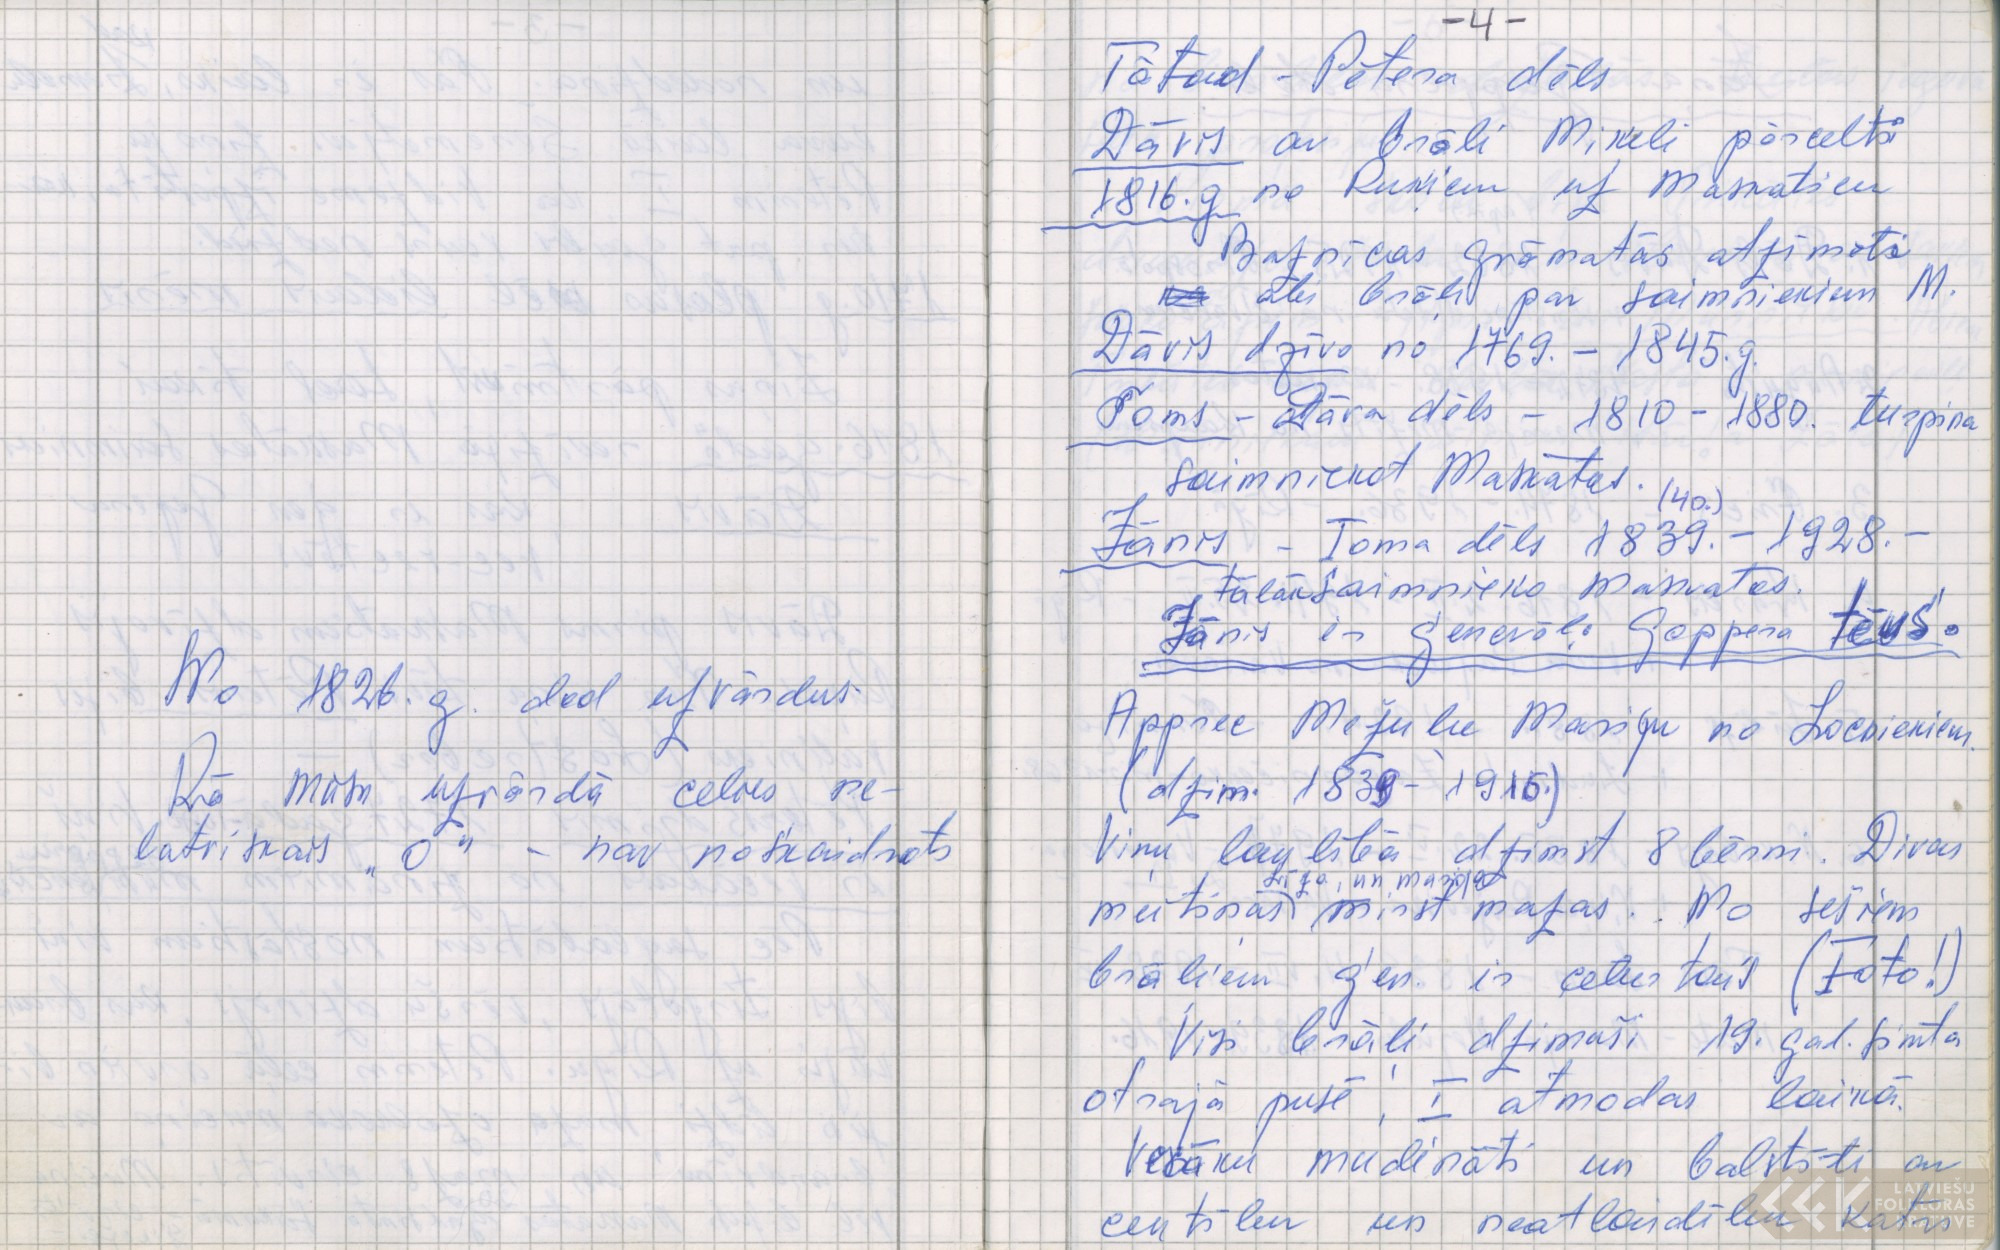 No 1826. g. dod uzvārdus.
Kā mūsu uzvārdā cēlies ne-
latviskais „ō" - nav noskaidrots
-4-
Tātad - Pētera dēls
Dāvis ar brāli Miķeli pārcelti
1816. g no Ruņķiem uz Maskatiem
Baznīcas grāmatās atzīmēti
abi brāļi par saimniekiem M.
Dāvis dzīvo no 1769. - 1845. g.
Toms - Dāva dēls - 1810 - 1880. turpina
saimniekot Maskatas.
(40.)
Jānis - Toma dēls 1839. - 1928. -
tālāk saimnieko Maskatas.
Jānis ir ģenerāļa Goppera tēvs.
Apprec Mežuli Mariju no Locniekiem.
(dzim. 1839 - 1915.)
Viņu laulībā dzimst 8 bērni. Divas
Līza, un Marija
meitiņas mirst mazas. No sešiem
brāļiem ģen. ir ceturtais (Foto!)
Visi brāļi dzimuši 19. gad. simta
otrajā pusē, I atmodas laikā.
Vecāku mudināti un balstīti ar
centību un neatlaidību katrs
LATVIEŠU
FOLKLORAS